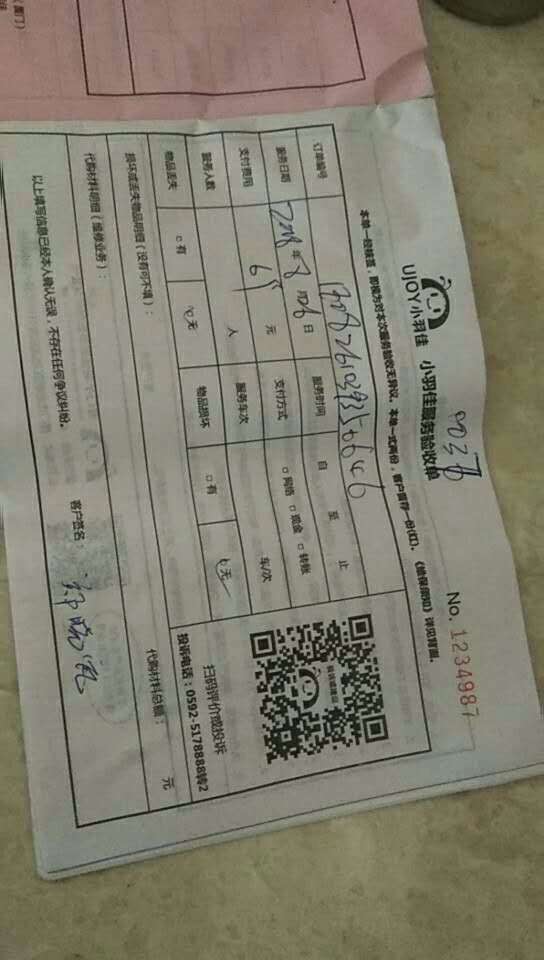 UJOY小羽佳 小羽佳服务验收单
No. 1234987
本单一经核签，即视为对本次服务验收无异议。本单一式两份，客户留存一份(红)。《维保须知》详见背面。
订单编号
服务日期 2018年8月26日 服务时间 自 至 止
支付费用 65元 支付方式 □网络 □现金 □转账
服务人数 人 服务车次 车/次
物品丢失 □有 □无 物品损坏 □有 □无
扫码评价或投诉
投诉电话：0592-5178888转2
损坏或丢失物品明细（没有可不填）：
代购材料明细（维修业务）： 代购材料总额： 元
以上填写信息已经本人确认无误，不存在任何争议纠纷。
客户签名：